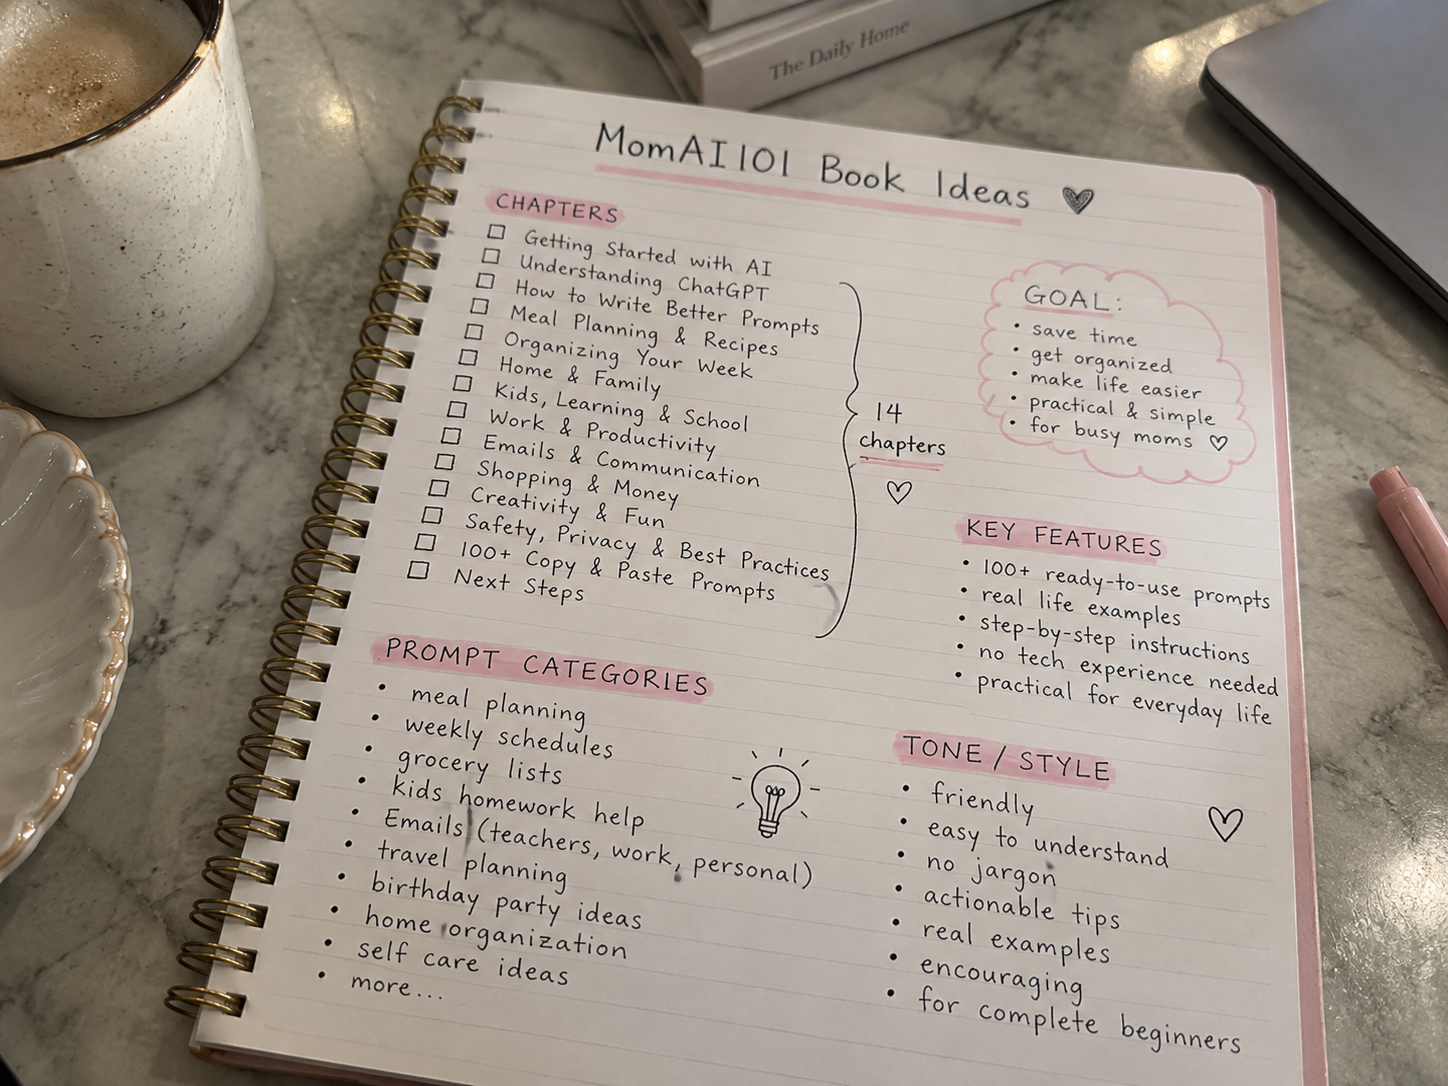 The Daily Home
MomAI101 Book Ideas
CHAPTERS
Getting Started with AI
Understanding ChatGPT
How to Write Better Prompts
Meal Planning & Recipes
Organizing Your Week
Home & Family
Kids, Learning & School
Work & Productivity
Emails & Communication
Shopping & Money
Creativity & Fun
Safety, Privacy & Best Practices
100+ Copy & Paste Prompts
Next Steps
14
chapters
GOAL:
• save time
• get organized
• make life easier
• practical & simple
• for busy moms ♡
KEY FEATURES
• 100+ ready-to-use prompts
• real life examples
• step-by-step instructions
• no tech experience needed
• practical for everyday life
PROMPT CATEGORIES
• meal planning
• weekly schedules
• grocery lists
• kids homework help
• Emails (teachers, work, personal)
• travel planning
• birthday party ideas
• home organization
• self care ideas
• more...
TONE / STYLE
• friendly
• easy to understand
• no jargon
• actionable tips
• real examples
• encouraging
• for complete beginners